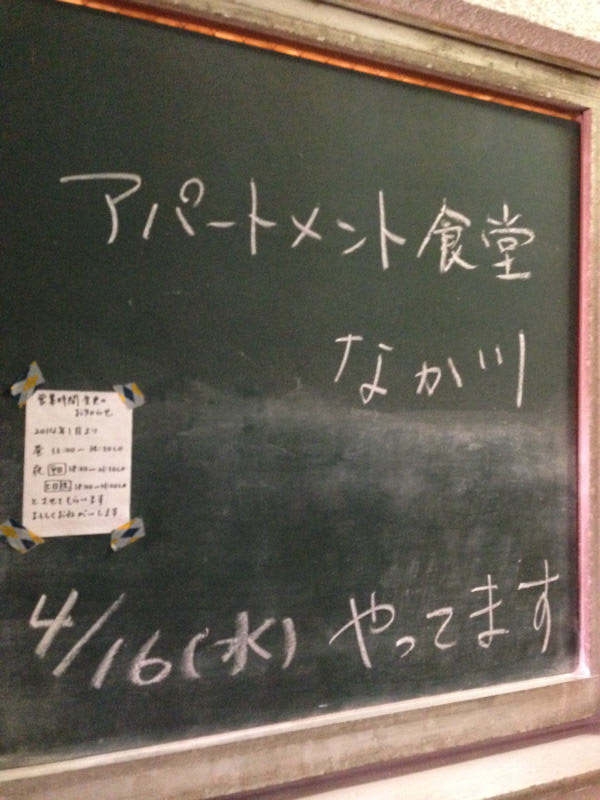 アパートメント食堂
なか川
営業時間変更の
お知らせ
2014年1月より
昼 12:00〜
夜 平日 18:00〜
土日祝 18:00〜
とさせてもらいます
よろしくおねがいします
4/16(水) やってます